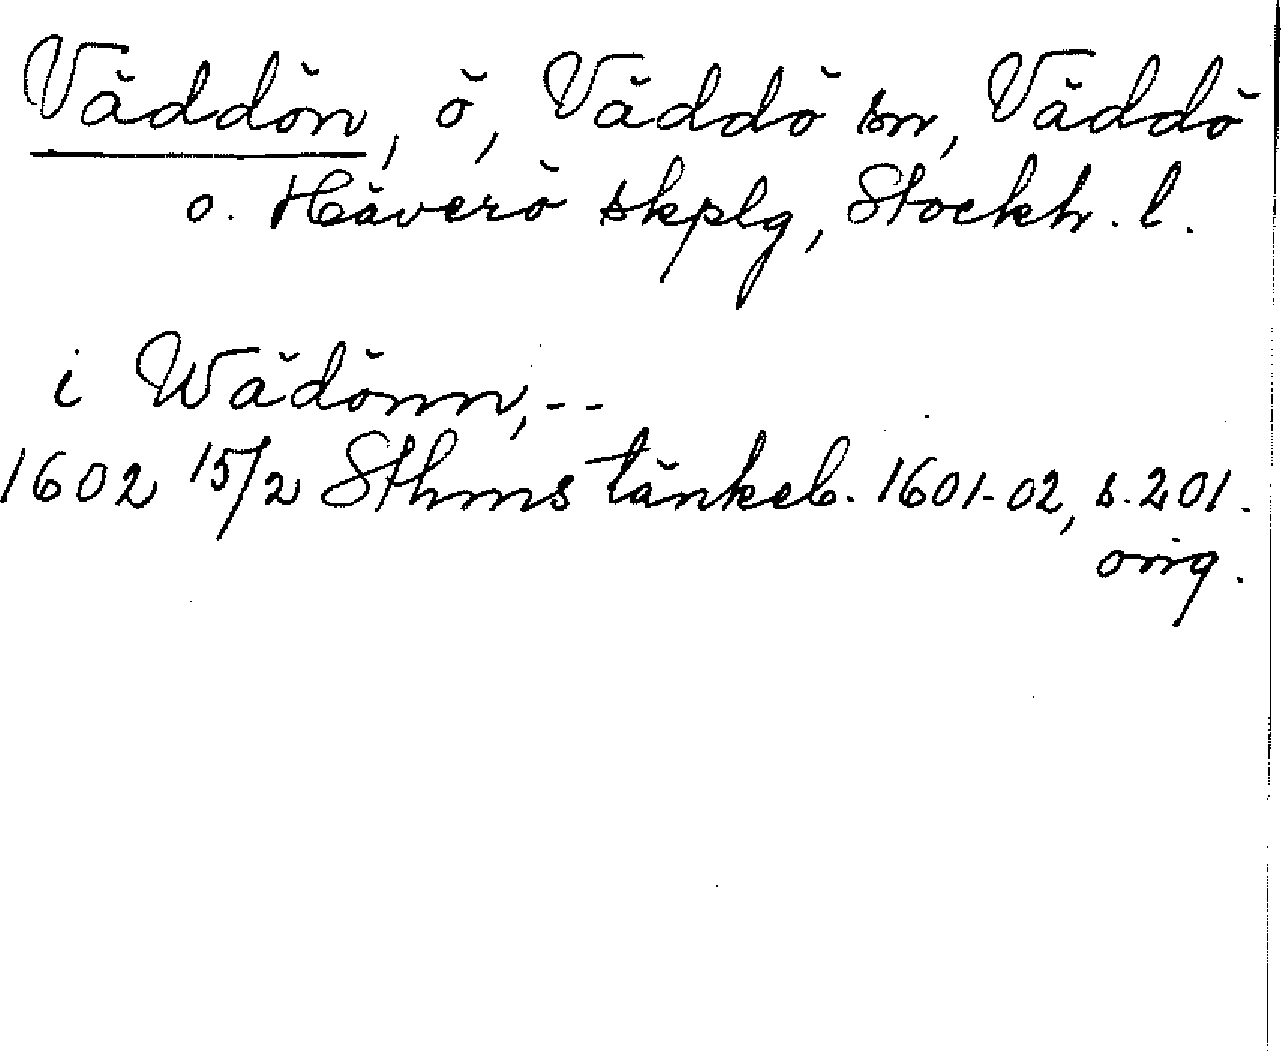 Väddön, ö, Väddö sn, Väddö
o. Häverö skplg, Stockh. l.
i Wädönn, --
1602 15/2 Sthms tänkeb. 1601-02, s. 201.
orig.